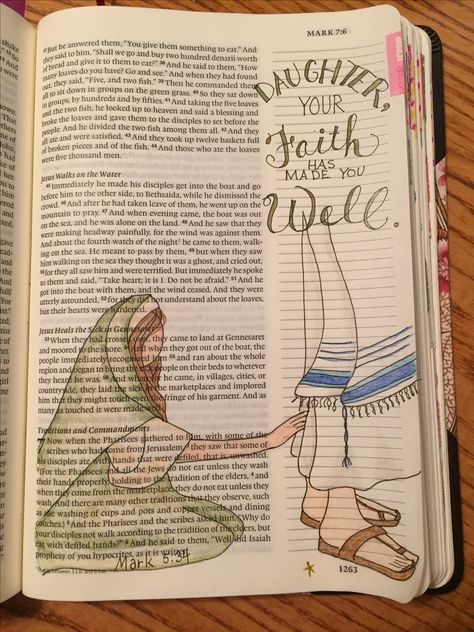 MARK 7:6
37 But he answered them, "You give them something to eat." And
they said to him, "Shall we go and buy two hundred denarii worth
of bread and give it to them to eat?" 38 And he said to them, "How
many loaves do you have? Go and see." And when they had found
out, they said, "Five, and two fish." 39 Then he commanded them
all to sit down in groups on the green grass. 40 So they sat down
in groups, by hundreds and by fifties. 41 And taking the five loaves
and the two fish, he looked up to heaven and said a blessing and
broke the loaves and gave them to the disciples to set before the
people. And he divided the two fish among them all. 42 And they
all ate and were satisfied. 43 And they took up twelve baskets full
of broken pieces and of the fish. 44 And those who ate the loaves
were five thousand men.
Jesus Walks on the Water
45 Immediately he made his disciples get into the boat and go
before him to the other side, to Bethsaida, while he dismissed the
crowd. 46 And after he had taken leave of them, he went up on the
mountain to pray. 47 And when evening came, the boat was out
on the sea, and he was alone on the land. 48 And he saw that they
were making headway painfully, for the wind was against them.
And about the fourth watch of the night he came to them, walk-
ing on the sea. He meant to pass by them, 49 but when they saw
him walking on the sea they thought it was a ghost, and cried out,
50 for they all saw him and were terrified. But immediately he spoke
to them and said, "Take heart; it is I. Do not be afraid." 51 And he
got into the boat with them, and the wind ceased. And they were
utterly astounded, 52 for they did not understand about the loaves,
but their hearts were hardened.
Jesus Heals the Sick in Gennesaret
53 When they had crossed over, they came to land at Gennesaret
and moored to the shore. 54 And when they got out of the boat, the
people immediately recognized him 55 and ran about the whole
region and began to bring the sick people on their beds to wherever
they heard he was. 56 And wherever he came, in villages, cities, or
countryside, they laid the sick in the marketplaces and implored
him that they might touch even the fringe of his garment. And as
many as touched it were made well.
Traditions and Commandments
7 Now when the Pharisees gathered to him, with some of the
scribes who had come from Jerusalem, 2 they saw that some of
his disciples ate with hands that were defiled, that is, unwashed.
3 (For the Pharisees and all the Jews do not eat unless they wash
their hands properly, holding to the tradition of the elders, 4 and
when they come from the marketplace, they do not eat unless they
wash. And there are many other traditions that they observe, such
as the washing of cups and pots and copper vessels and dining
couches.) 5 And the Pharisees and the scribes asked him, "Why do
your disciples not walk according to the tradition of the elders, but
eat with defiled hands?" 6 And he said to them, "Well did Isaiah
prophesy of you hypocrites, as it is written,
between 3 A.M. and 6 A.M.
Mark 5:34
1263
DAUGHTER,
YOUR
Faith
HAS
MADE YOU
Well.